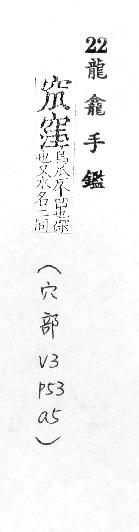 22龍龕手鑑
窊窪烏瓜反凹也深也又水名二同
（穴部V3P53a5）